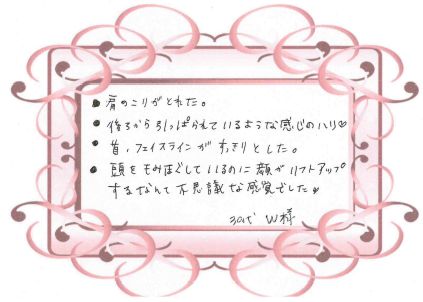 ● 肩のこりがとれた。
● 後ろから引っぱられているような感じのハリ♡
● 首、フェイスラインがすっきりとした。
● 頭をもみほぐしているのに顔がリフトアップ
するなんて不思議な感覚でした♡
30代 W様